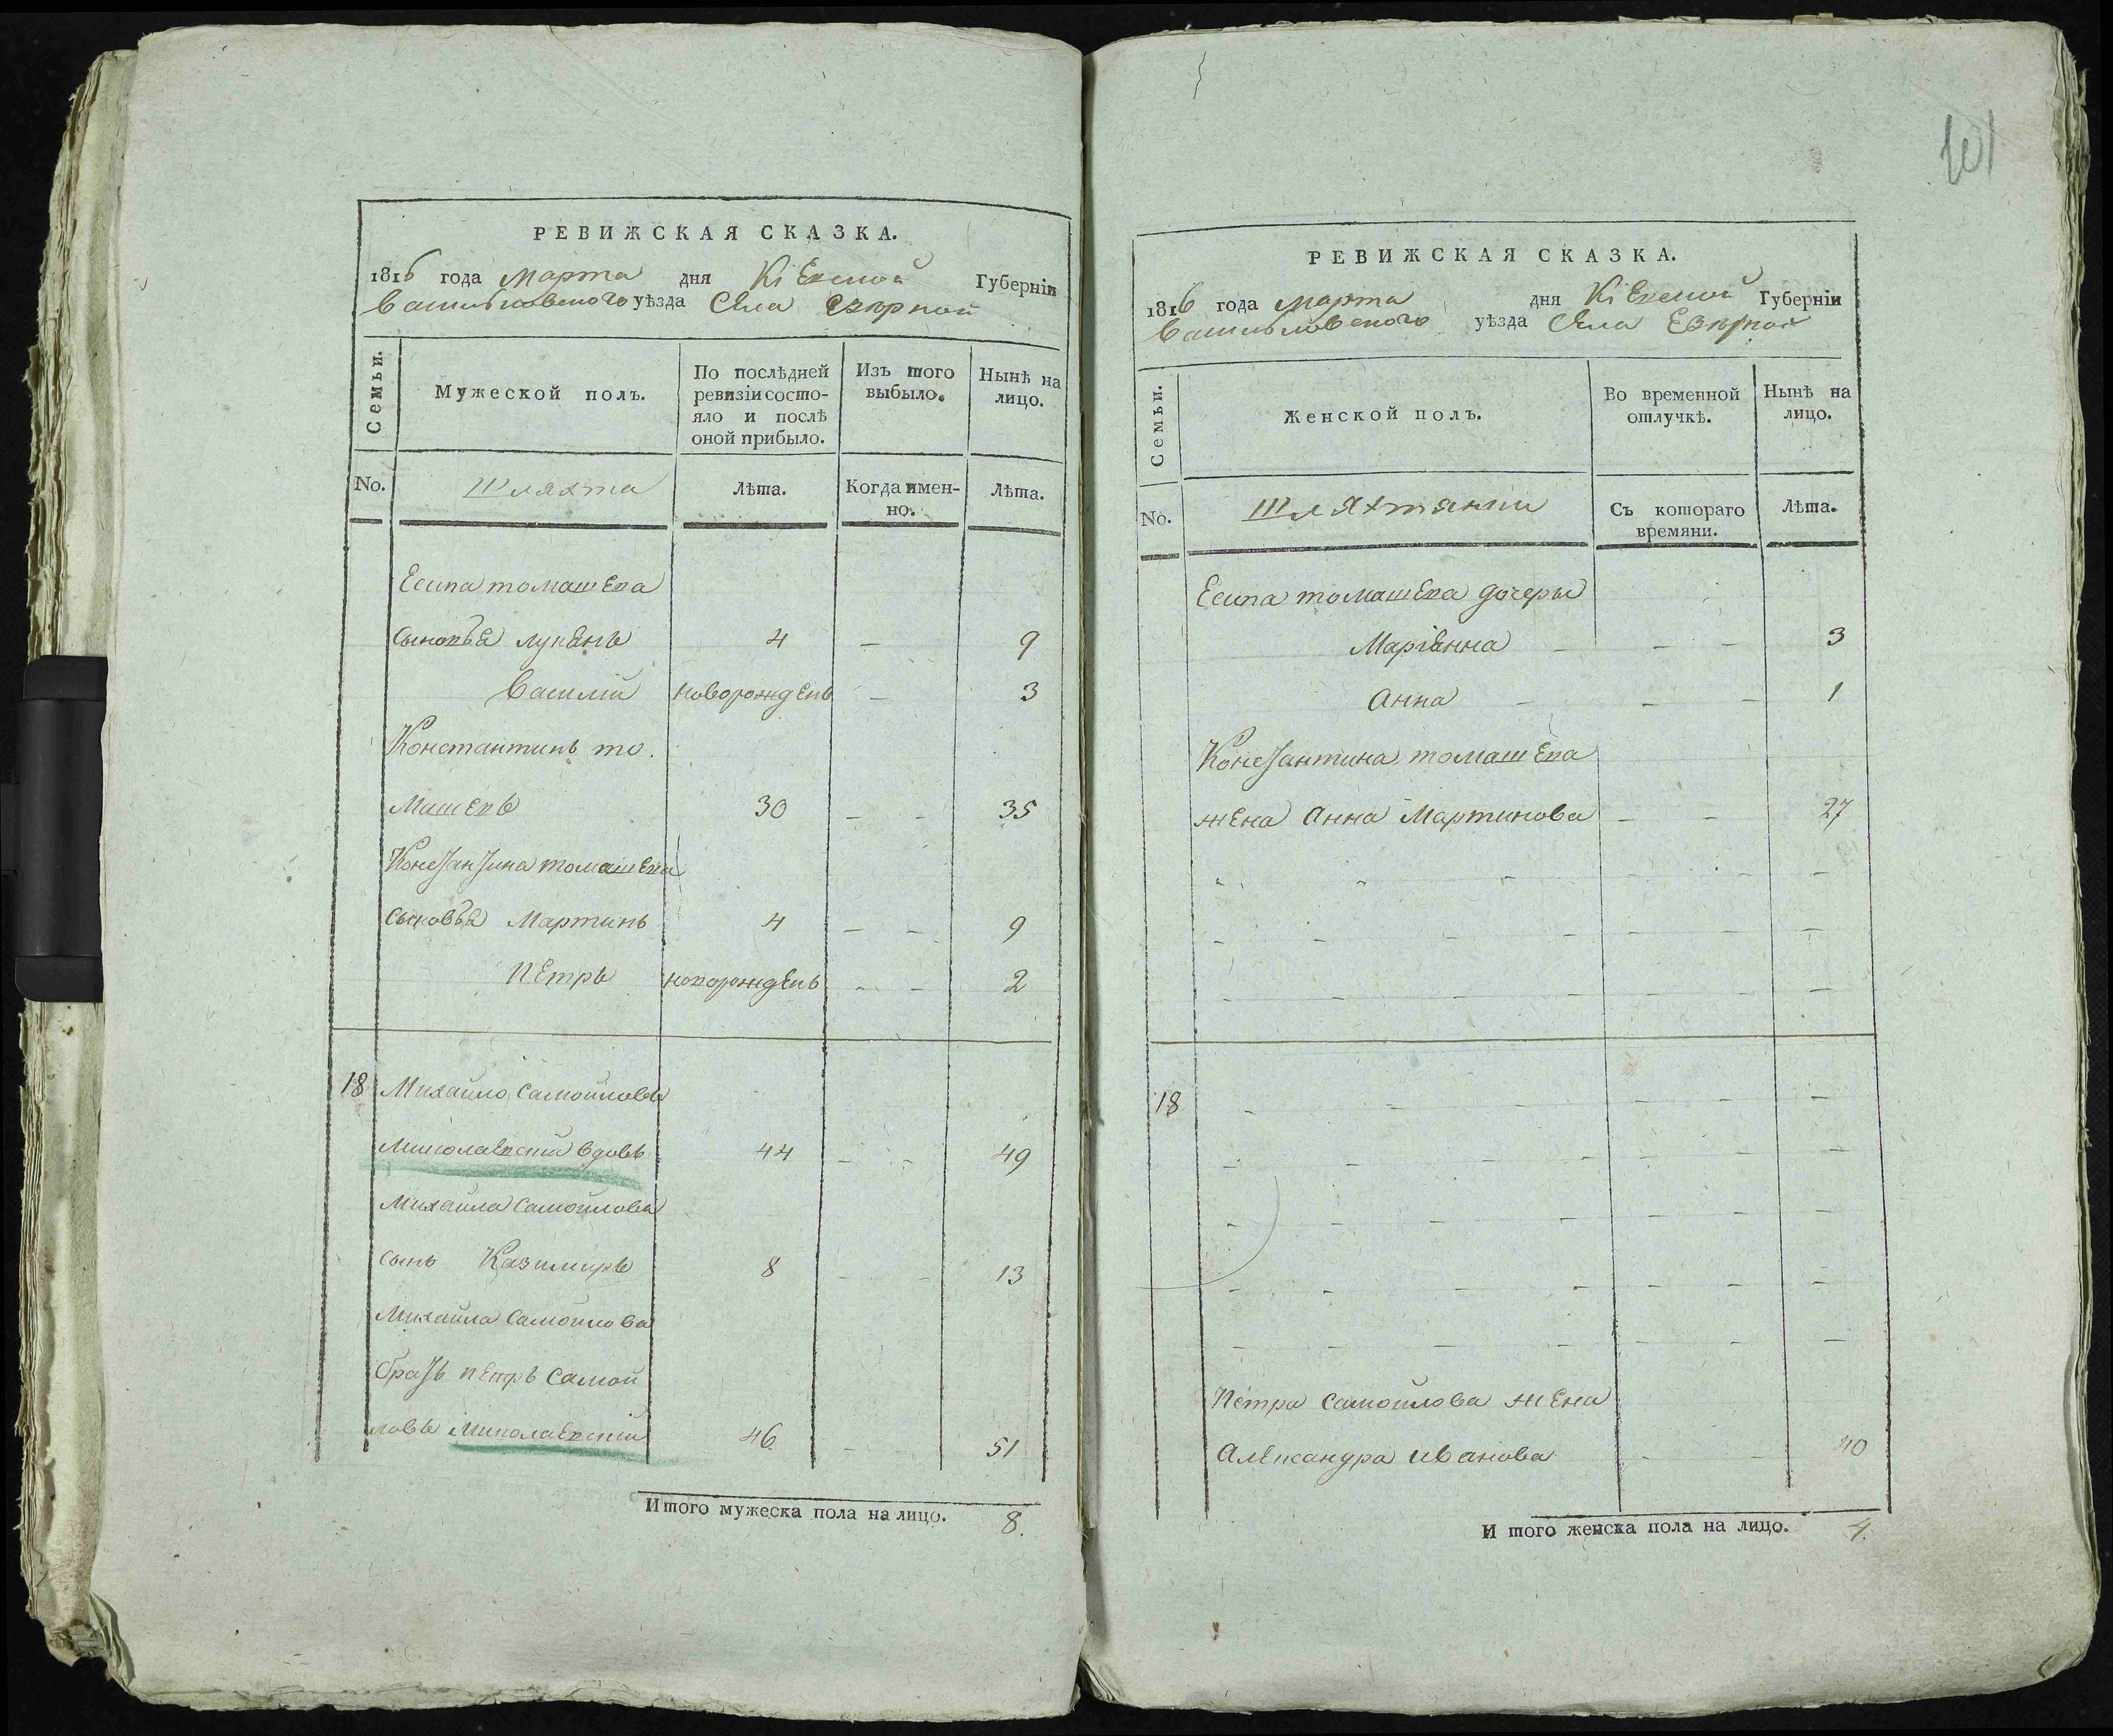 РЕВИЖСКАЯ СКАЗКА.
1816 года Марта дня Кіевской Губерніи
Васильковского уѣзда Села Езѣрной
Семьи.
Мужеской полъ.
По послѣдней ревизіи состояло и послѣ оной прибыло.
Изъ того выбыло.
Нынѣ на лицо.
No.
Шляхта
Лѣта.
Когда именно.
Лѣта.
Есипа томашева
сыновья лукянъ 4 — 9
Василій новорожденъ — 3
Константинъ то.
Машевъ 30 — - 35
Константина томашева
сыновья Мартинъ 4 — - 9
Петръ новорожденъ - - 2
18 Михайло Самойловъ
Миколаевский вдовъ 44 - - 49
Михайла Самойлова
сынъ Казимиръ 8 - - 13
Михайла Самойлова
братъ петръ Самой
ловъ Миколаевский 46 - - 51
Итого мужеска пола на лицо. 8.
101
РЕВИЖСКАЯ СКАЗКА.
1816 года Марта дня Кіевской Губерніи
Васильковского уѣзда Села Езѣрной
Семьи.
Женской полъ.
Во временной отлучкѣ.
Нынѣ на лицо.
No.
Шляхтянки
Съ котораго времяни.
Лѣта.
Есипа томашева дочеры
Маріянна - - - 3
Анна - - - 1
Константина томашева
жена Анна Мартинова - - 27
18
Петра Самойлова жена
Александра Иванова - - 40
И того женска пола на лицо. 4.